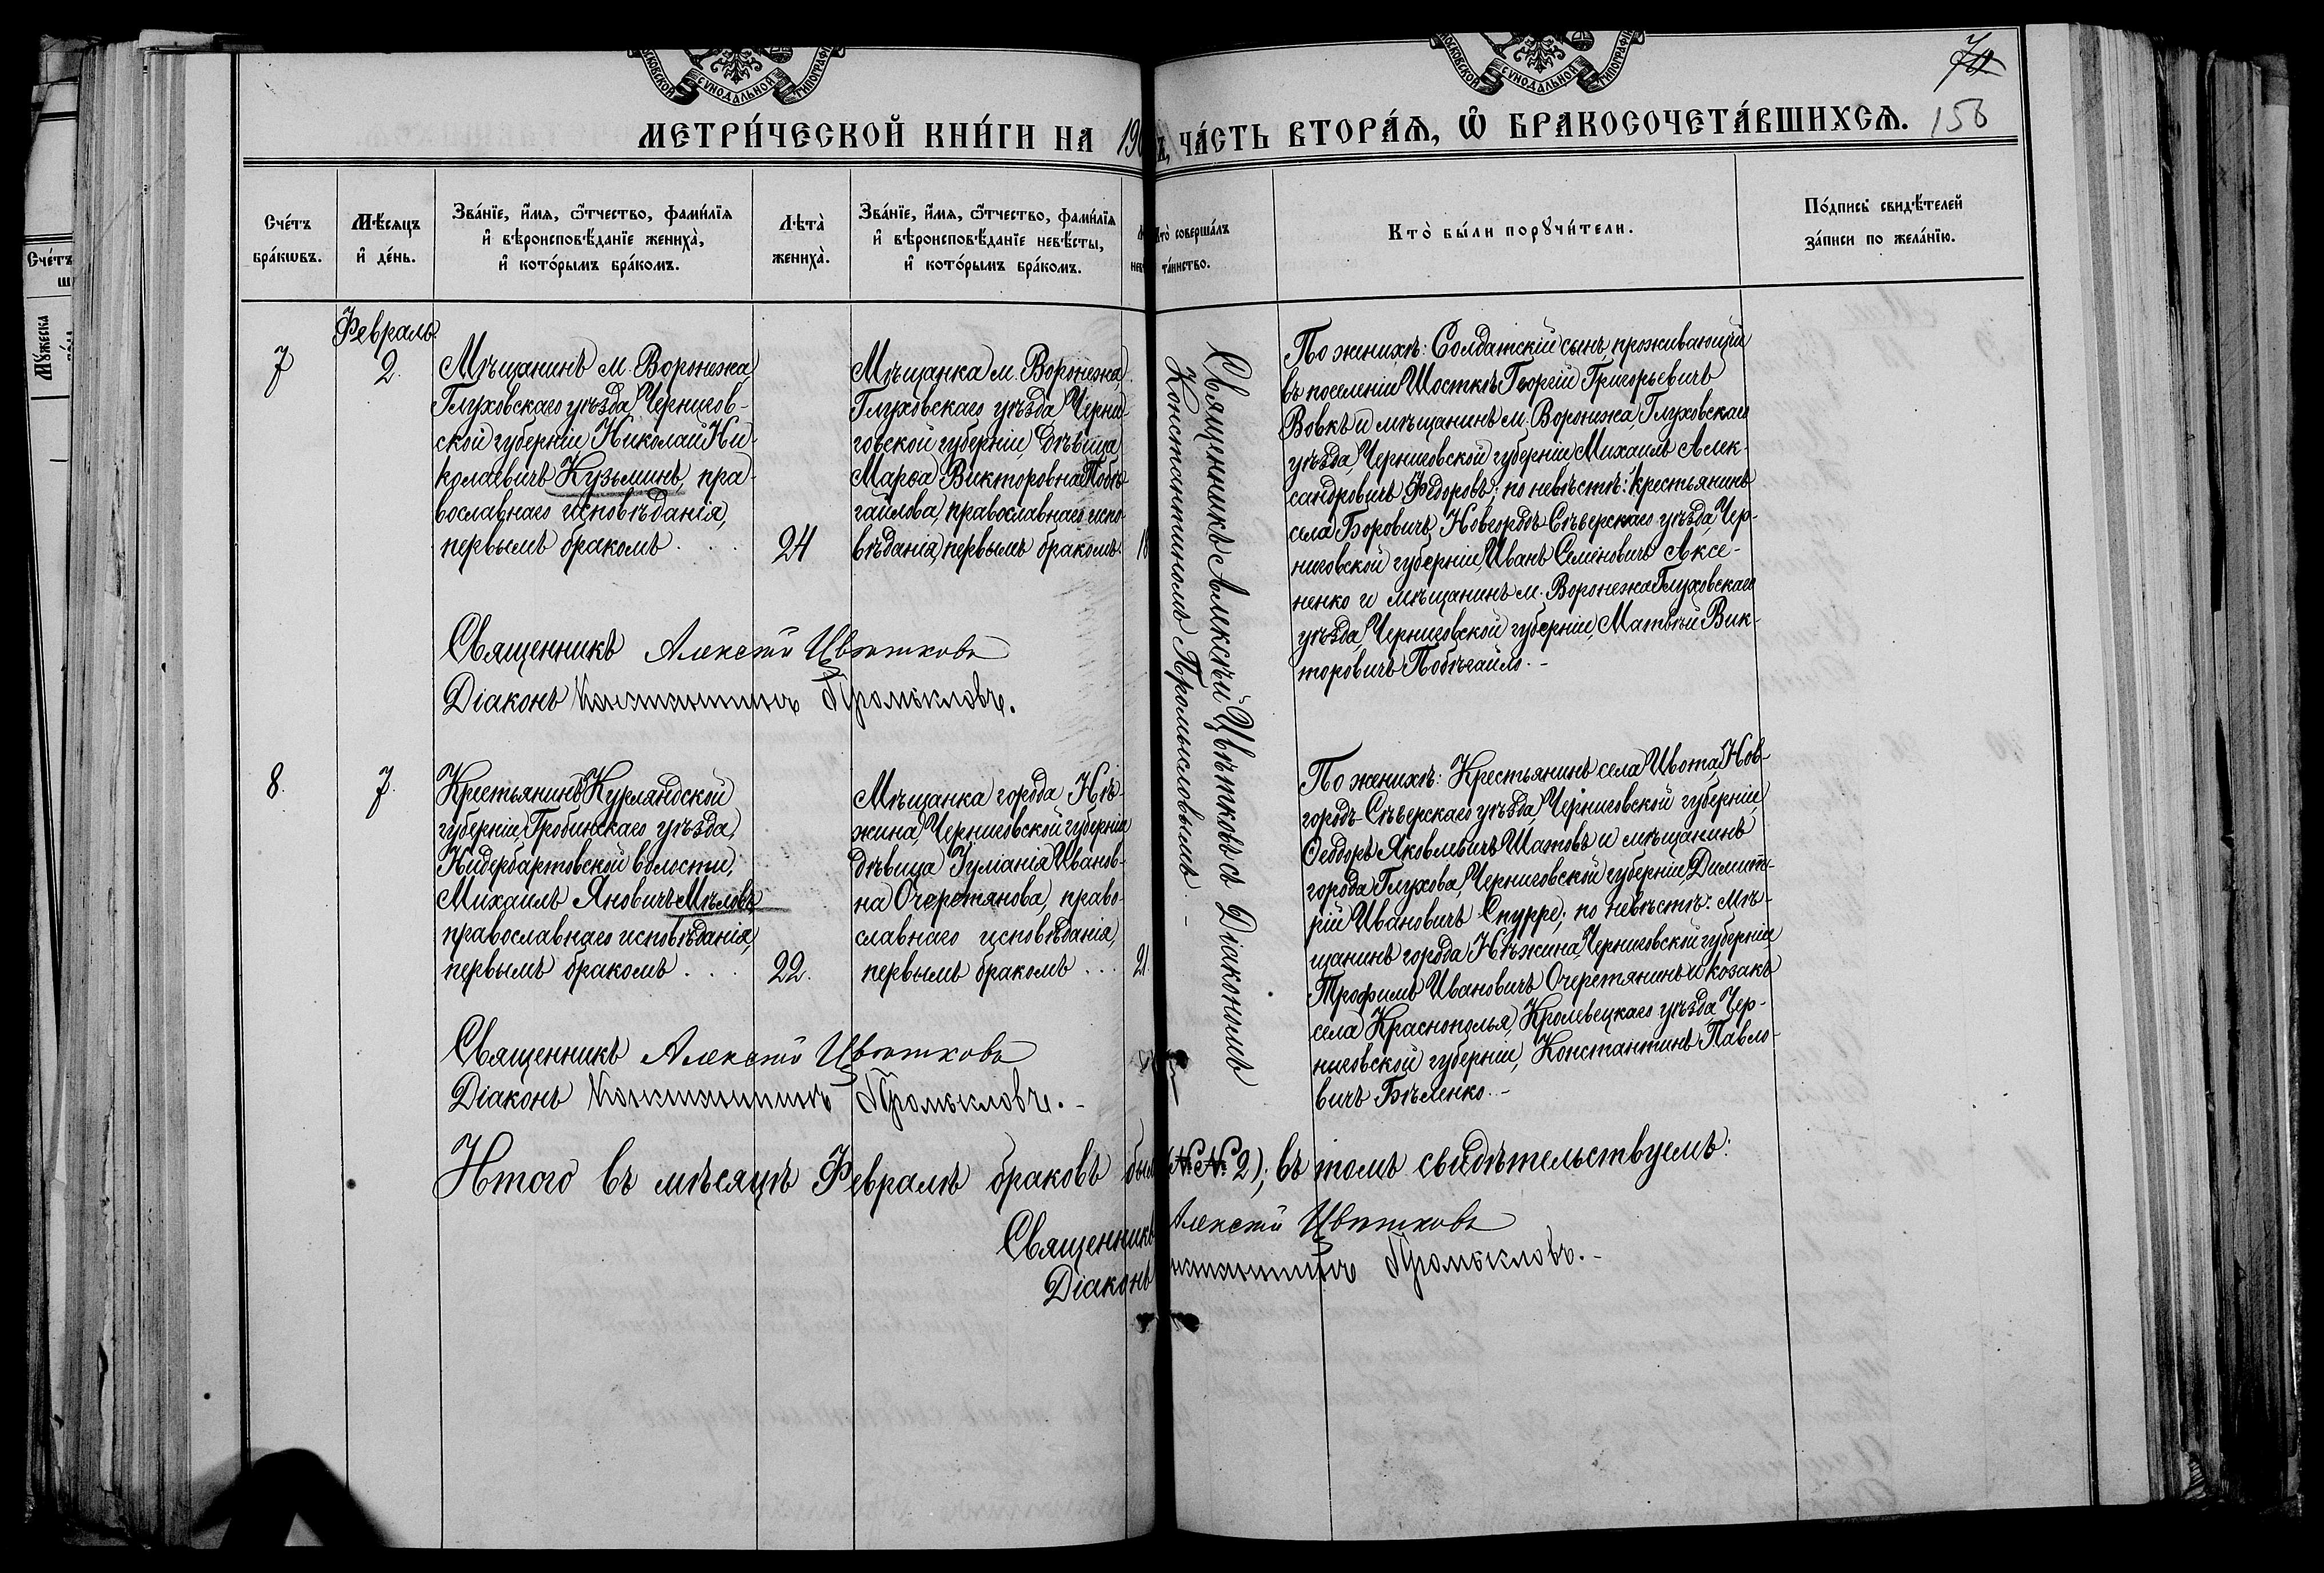 МОСКОВСКОЙ СѴНОДАЛЬНОЙ ТИПОГРАФІИ
МОСКОВСКОЙ СѴНОДАЛЬНОЙ ТИПОГРАФІИ
70
156
МЕТРИ́ЧЕСКОЙ КНИ́ГИ НА 190
ЧА́СТЬ ВТОРА́Я, Ѡ҆ БРАКОСОЧЕТА́ВШИХСЯ.
Сче́тъ
бра́кѡвъ.
Мѣ́сяцъ
и҆ де́нь.
Зва́нїе, и҆́мя, ѻ҆́тчество, фами́лїя
и҆ вѣроисповѣ́данїе жениха̀,
и҆ кото́рымъ бра́комъ.
Лѣта̀
жениха̀.
Зва́нїе, и҆́мя, ѻ҆́тчество, фами́лїя
и҆ вѣроисповѣ́данїе невѣ́сты,
и҆ кото́рымъ бра́комъ.
Кто̀ соверша́лъ
та́инство.
Кто̀ бы́ли порꙋчи́тели.
По́дпись свидѣ́телей
за́писи по жела́нїю.
Февраль.
7
2.
Мѣщанинъ м. Воронежа,
Глуховскаго уѣзда, Чернигов-
ской губерніи, Николай Ни-
колаевичъ Кузьминъ, пра-
вославнаго исповѣданія,
первымъ бракомъ . . .
24
Мѣщанка м. Воронежа,
Глуховскаго уѣзда, Черни-
говской губерніи, дѣвица
Марѳа Викторовна Побѣ-
гайлова, православнаго испо-
вѣданія, первымъ бракомъ.
18
Священникъ Алексѣй Цвѣтковъ съ Діакономъ
Константиномъ Промысловымъ. -
По женихѣ: Солдатскій сынъ, проживающій
въ поселеніи Шосткѣ Георгій Григорьевичъ
Вовкъ и мѣщанинъ м. Воронежа, Глуховскаго
уѣзда, Черниговской губерніи Михаилъ Алек-
сандровичъ Федоровъ; по невѣстѣ: крестьянинъ
села Боровичъ, Новгородъ Сѣверскаго уѣзда, Чер-
ниговской губерніи, Иванъ Семеновичъ Аксе-
ненко и мѣщанинъ м. Воронежа Глуховскаго
уѣзда, Черниговской губерніи, Матвѣй Вик-
торовичъ Побѣгайло. -
Священникъ Алексѣй Цвѣтковъ
Діаконъ Константинъ Промысловъ.
8.
7.
Крестьянинъ Курляндской
губерніи, Гробинскаго уѣзда,
Нидербартовской волости,
Михаилъ Яновичъ Мѣловъ,
православнаго исповѣданія,
первымъ бракомъ . . .
22.
Мѣщанка города Нѣ-
жина, Черниговской губерніи
дѣвица Гуманія Иванов-
на Очеретянова, право-
славнаго исповѣданія,
первымъ бракомъ . . .
21.
По женихѣ: Крестьянинъ села Ивота, Нов-
городъ-Сѣверскаго уѣзда, Черниговской губерніи,
Ѳеодоръ Яковлевичъ Шатовъ и мѣщанинъ
города Глухова, Черниговской губерніи, Димит-
рій Ивановичъ Спурре; по невѣстѣ: Мѣ-
щанинъ города Нѣжина, Черниговской губерніи
Трофимъ Ивановичъ Очеретянинъ и козакъ
села Краснополья, Кролевецкаго уѣзда, Чер-
ниговской губерніи, Константинъ Павло-
вичъ Бѣленко. -
Священникъ Алексѣй Цвѣтковъ
Діаконъ Константинъ Промысловъ. -
Итого въ мѣсяцѣ Февралѣ браковъ было (№№ 2); въ томъ свидѣтельствуемъ:
Священникъ Алексѣй Цвѣтковъ
Діаконъ Константинъ Промысловъ. -